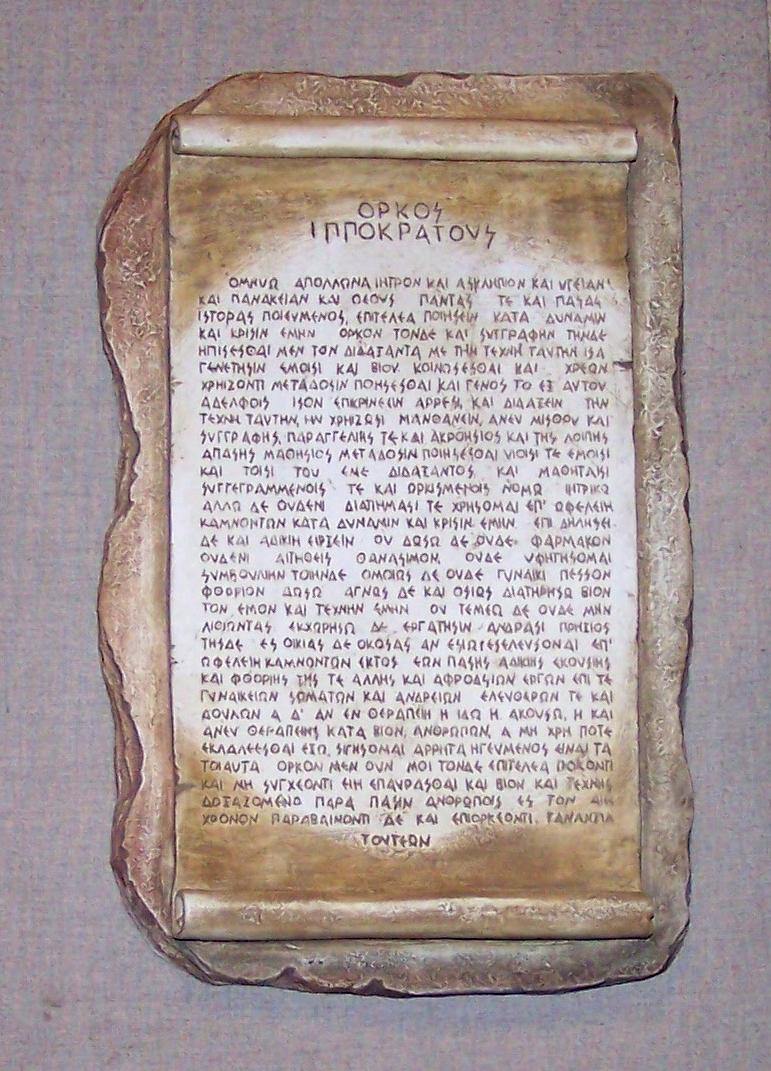 ΟΡΚΟΣ
ΙΠΠΟΚΡΑΤΟΥΣ
ΟΜΝΥΩ ΑΠΟΛΛΩΝΑ ΙΗΤΡΟΝ ΚΑΙ ΑΣΚΛΗΠΙΟΝ ΚΑΙ ΥΓΕΙΑΝ
ΚΑΙ ΠΑΝΑΚΕΙΑΝ ΚΑΙ ΘΕΟΥΣ ΠΑΝΤΑΣ ΤΕ ΚΑΙ ΠΑΣΑΣ
ΙΣΤΟΡΑΣ ΠΟΙΕΥΜΕΝΟΣ, ΕΠΙΤΕΛΕΑ ΠΟΙΗΣΕΙΝ ΚΑΤΑ ΔΥΝΑΜΙΝ
ΚΑΙ ΚΡΙΣΙΝ ΕΜΗΝ ΟΡΚΟΝ ΤΟΝΔΕ ΚΑΙ ΣΥΓΓΡΑΦΗΝ ΤΗΝΔΕ
ΗΓΗΣΕΣΘΑΙ ΜΕΝ ΤΟΝ ΔΙΔΑΞΑΝΤΑ ΜΕ ΤΗΝ ΤΕΧΝΗΝ ΤΑΥΤΗΝ ΙΣΑ
ΓΕΝΕΤΗΣΙΝ ΕΜΟΙΣΙ ΚΑΙ ΒΙΟΥ ΚΟΙΝΩΣΕΣΘΑΙ ΚΑΙ ΧΡΕΩΝ
ΧΡΗΙΖΟΝΤΙ ΜΕΤΑΔΟΣΙΝ ΠΟΙΗΣΕΣΘΑΙ ΚΑΙ ΓΕΝΟΣ ΤΟ ΕΞ ΑΥΤΟΥ
ΑΔΕΛΦΟΙΣ ΙΣΟΝ ΕΠΙΚΡΙΝΕΕΙΝ ΑΡΡΕΣΙ, ΚΑΙ ΔΙΔΑΞΕΙΝ ΤΗΝ
ΤΕΧΝΗΝ ΤΑΥΤΗΝ, ΗΝ ΧΡΗΙΖΩΣΙ ΜΑΝΘΑΝΕΙΝ, ΑΝΕΥ ΜΙΣΘΟΥ ΚΑΙ
ΣΥΓΓΡΑΦΗΣ, ΠΑΡΑΓΓΕΛΙΗΣ ΤΕ ΚΑΙ ΑΚΡΟΗΣΙΟΣ ΚΑΙ ΤΗΣ ΛΟΙΠΗΣ
ΑΠΑΣΗΣ ΜΑΘΗΣΙΟΣ ΜΕΤΑΔΟΣΙΝ ΠΟΙΗΣΕΣΘΑΙ ΥΙΟΙΣΙ ΤΕ ΕΜΟΙΣΙ
ΚΑΙ ΤΟΙΣΙ ΤΟΥ ΕΜΕ ΔΙΔΑΞΑΝΤΟΣ ΚΑΙ ΜΑΘΗΤΑΙΣΙ
ΣΥΓΓΕΓΡΑΜΜΕΝΟΙΣ ΤΕ ΚΑΙ ΩΡΚΙΣΜΕΝΟΙΣ ΝΟΜΩ ΙΗΤΡΙΚΩ
ΑΛΛΩ ΔΕ ΟΥΔΕΝΙ ΔΙΑΙΤΗΜΑΣΙ ΤΕ ΧΡΗΣΟΜΑΙ ΕΠ' ΩΦΕΛΕΙΗ
ΚΑΜΝΟΝΤΩΝ ΚΑΤΑ ΔΥΝΑΜΙΝ ΚΑΙ ΚΡΙΣΙΝ ΕΜΗΝ ΕΠΙ ΔΗΛΗΣΕΙ
ΔΕ ΚΑΙ ΑΔΙΚΙΗ ΕΙΡΞΕΙΝ ΟΥ ΔΩΣΩ ΔΕ ΟΥΔΕ ΦΑΡΜΑΚΟΝ
ΟΥΔΕΝΙ ΑΙΤΗΘΕΙΣ ΘΑΝΑΣΙΜΟΝ, ΟΥΔΕ ΥΦΗΓΗΣΟΜΑΙ
ΣΥΜΒΟΥΛΙΗΝ ΤΟΙΗΝΔΕ ΟΜΟΙΩΣ ΔΕ ΟΥΔΕ ΓΥΝΑΙΚΙ ΠΕΣΣΟΝ
ΦΘΟΡΙΟΝ ΔΩΣΩ ΑΓΝΩΣ ΔΕ ΚΑΙ ΟΣΙΩΣ ΔΙΑΤΗΡΗΣΩ ΒΙΟΝ
ΤΟΝ ΕΜΟΝ ΚΑΙ ΤΕΧΝΗΝ ΕΜΗΝ ΟΥ ΤΕΜΕΩ ΔΕ ΟΥΔΕ ΜΗΝ
ΛΙΘΙΩΝΤΑΣ ΕΚΧΩΡΗΣΩ ΔΕ ΕΡΓΑΤΗΣΙΝ ΑΝΔΡΑΣΙ ΠΡΗΞΙΟΣ
ΤΗΣΔΕ ΕΣ ΟΙΚΙΑΣ ΔΕ ΟΚΟΣΑΣ ΑΝ ΕΣΙΩ ΕΣΕΛΕΥΣΟΜΑΙ ΕΠ'
ΩΦΕΛΕΙΗ ΚΑΜΝΟΝΤΩΝ ΕΚΤΟΣ ΕΩΝ ΠΑΣΗΣ ΑΔΙΚΙΗΣ ΕΚΟΥΣΙΗΣ
ΚΑΙ ΦΘΟΡΙΗΣ ΤΗΣ ΤΕ ΑΛΛΗΣ ΚΑΙ ΑΦΡΟΔΙΣΙΩΝ ΕΡΓΩΝ ΕΠΙ ΤΕ
ΓΥΝΑΙΚΕΙΩΝ ΣΩΜΑΤΩΝ ΚΑΙ ΑΝΔΡΕΙΩΝ ΕΛΕΥΘΕΡΩΝ ΤΕ ΚΑΙ
ΔΟΥΛΩΝ Α Δ' ΑΝ ΕΝ ΘΕΡΑΠΕΙΗ Η ΙΔΩ Η ΑΚΟΥΣΩ, Η ΚΑΙ
ΑΝΕΥ ΘΕΡΑΠΕΙΗΣ ΚΑΤΑ ΒΙΟΝ ΑΝΘΡΩΠΩΝ, Α ΜΗ ΧΡΗ ΠΟΤΕ
ΕΚΛΑΛΕΕΣΘΑΙ ΕΞΩ, ΣΙΓΗΣΟΜΑΙ ΑΡΡΗΤΑ ΗΓΕΥΜΕΝΟΣ ΕΙΝΑΙ ΤΑ
ΤΟΙΑΥΤΑ ΟΡΚΟΝ ΜΕΝ ΟΥΝ ΜΟΙ ΤΟΝΔΕ ΕΠΙΤΕΛΕΑ ΠΟΙΕΟΝΤΙ
ΚΑΙ ΜΗ ΣΥΓΧΕΟΝΤΙ ΕΙΗ ΕΠΑΥΡΑΣΘΑΙ ΚΑΙ ΒΙΟΥ ΚΑΙ ΤΕΧΝΗΣ
ΔΟΞΑΖΟΜΕΝΩ ΠΑΡΑ ΠΑΣΙΝ ΑΝΘΡΩΠΟΙΣ ΕΣ ΤΟΝ ΑΙΕΙ
ΧΡΟΝΟΝ ΠΑΡΑΒΑΙΝΟΝΤΙ ΔΕ ΚΑΙ ΕΠΙΟΡΚΕΟΝΤΙ, ΤΑΝΑΝΤΙΑ
ΤΟΥΤΕΩΝ